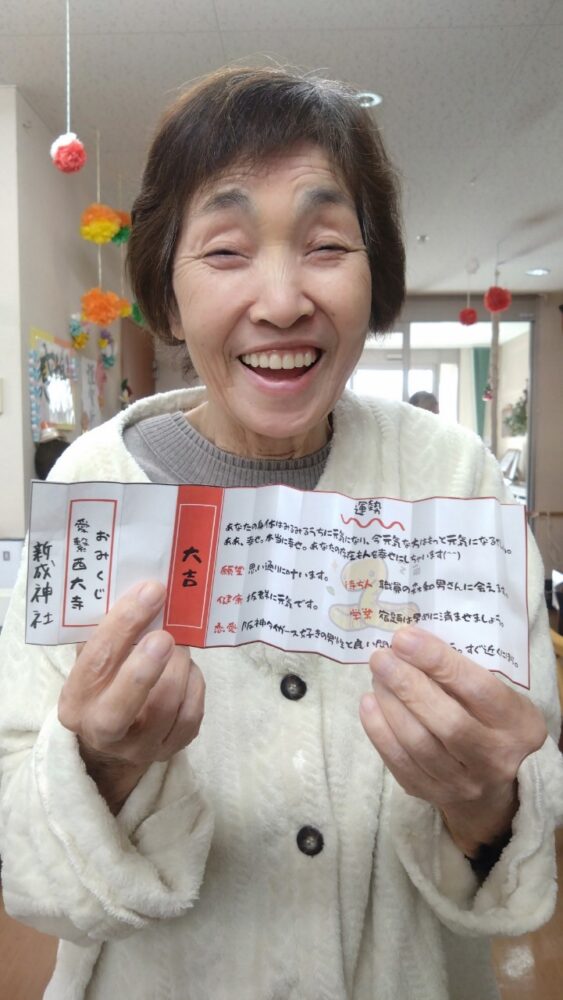 新成神社
おみくじ
愛繋西大寺
大吉
運勢
あなたの身体はみるみるうちに元気になり、今元気な方はもっと元気になる
ああ、幸せ。本当に幸せ。あなたの存在も人を幸せにしちゃいます(^^)
願望 思い通りに叶います。
待ち人 の森和男さんに会えます。
健康 抜群に元気です。
学業 宿題は早めに済ませましょう。
恋愛 阪神タイガース好きの男性と良い すぐ近くに